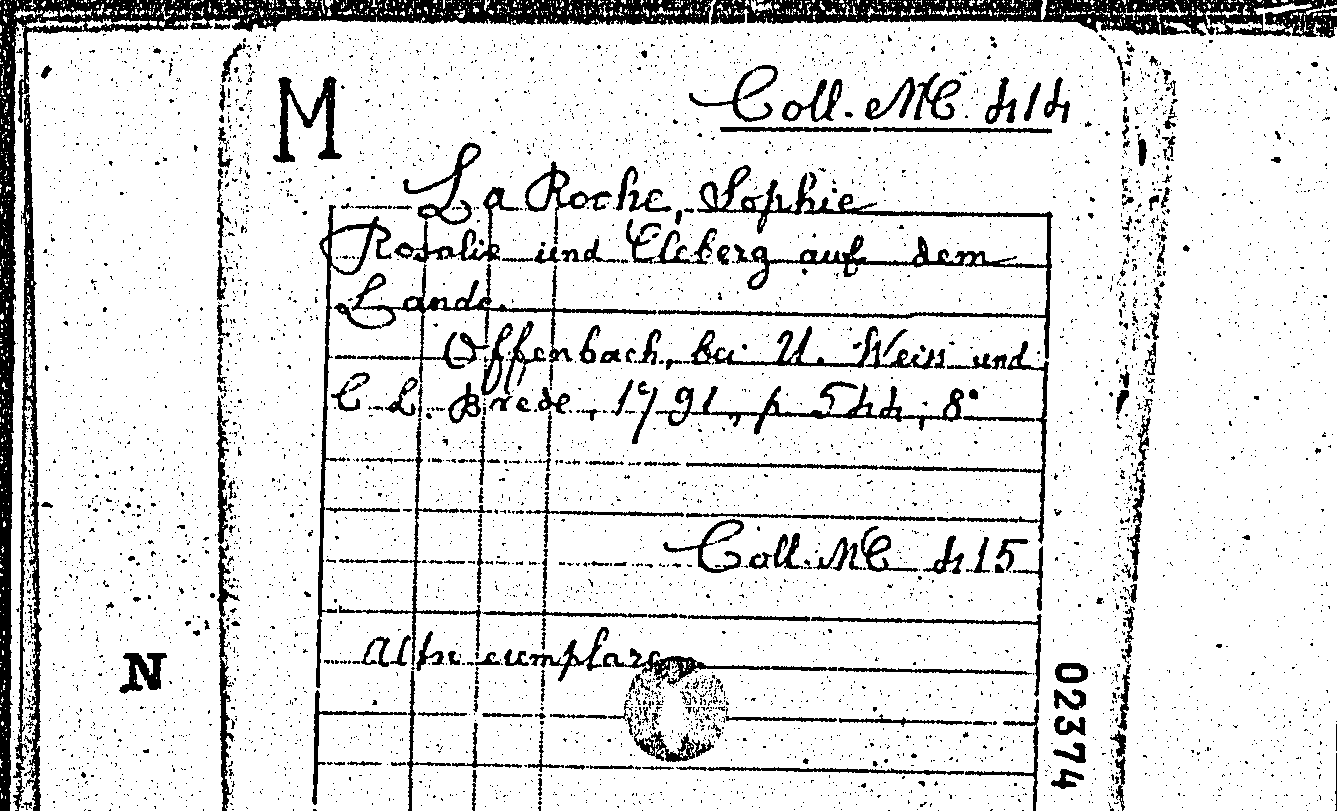 M
Coll. MC 414
La Roche, Sophie
Rosalie und Cleberg auf dem
Lande.
Offenbach, bei U. Weiss und
C. L. Brede, 1791, p 544; 8°
Coll. MC 415
Altre exemplare
N
02374